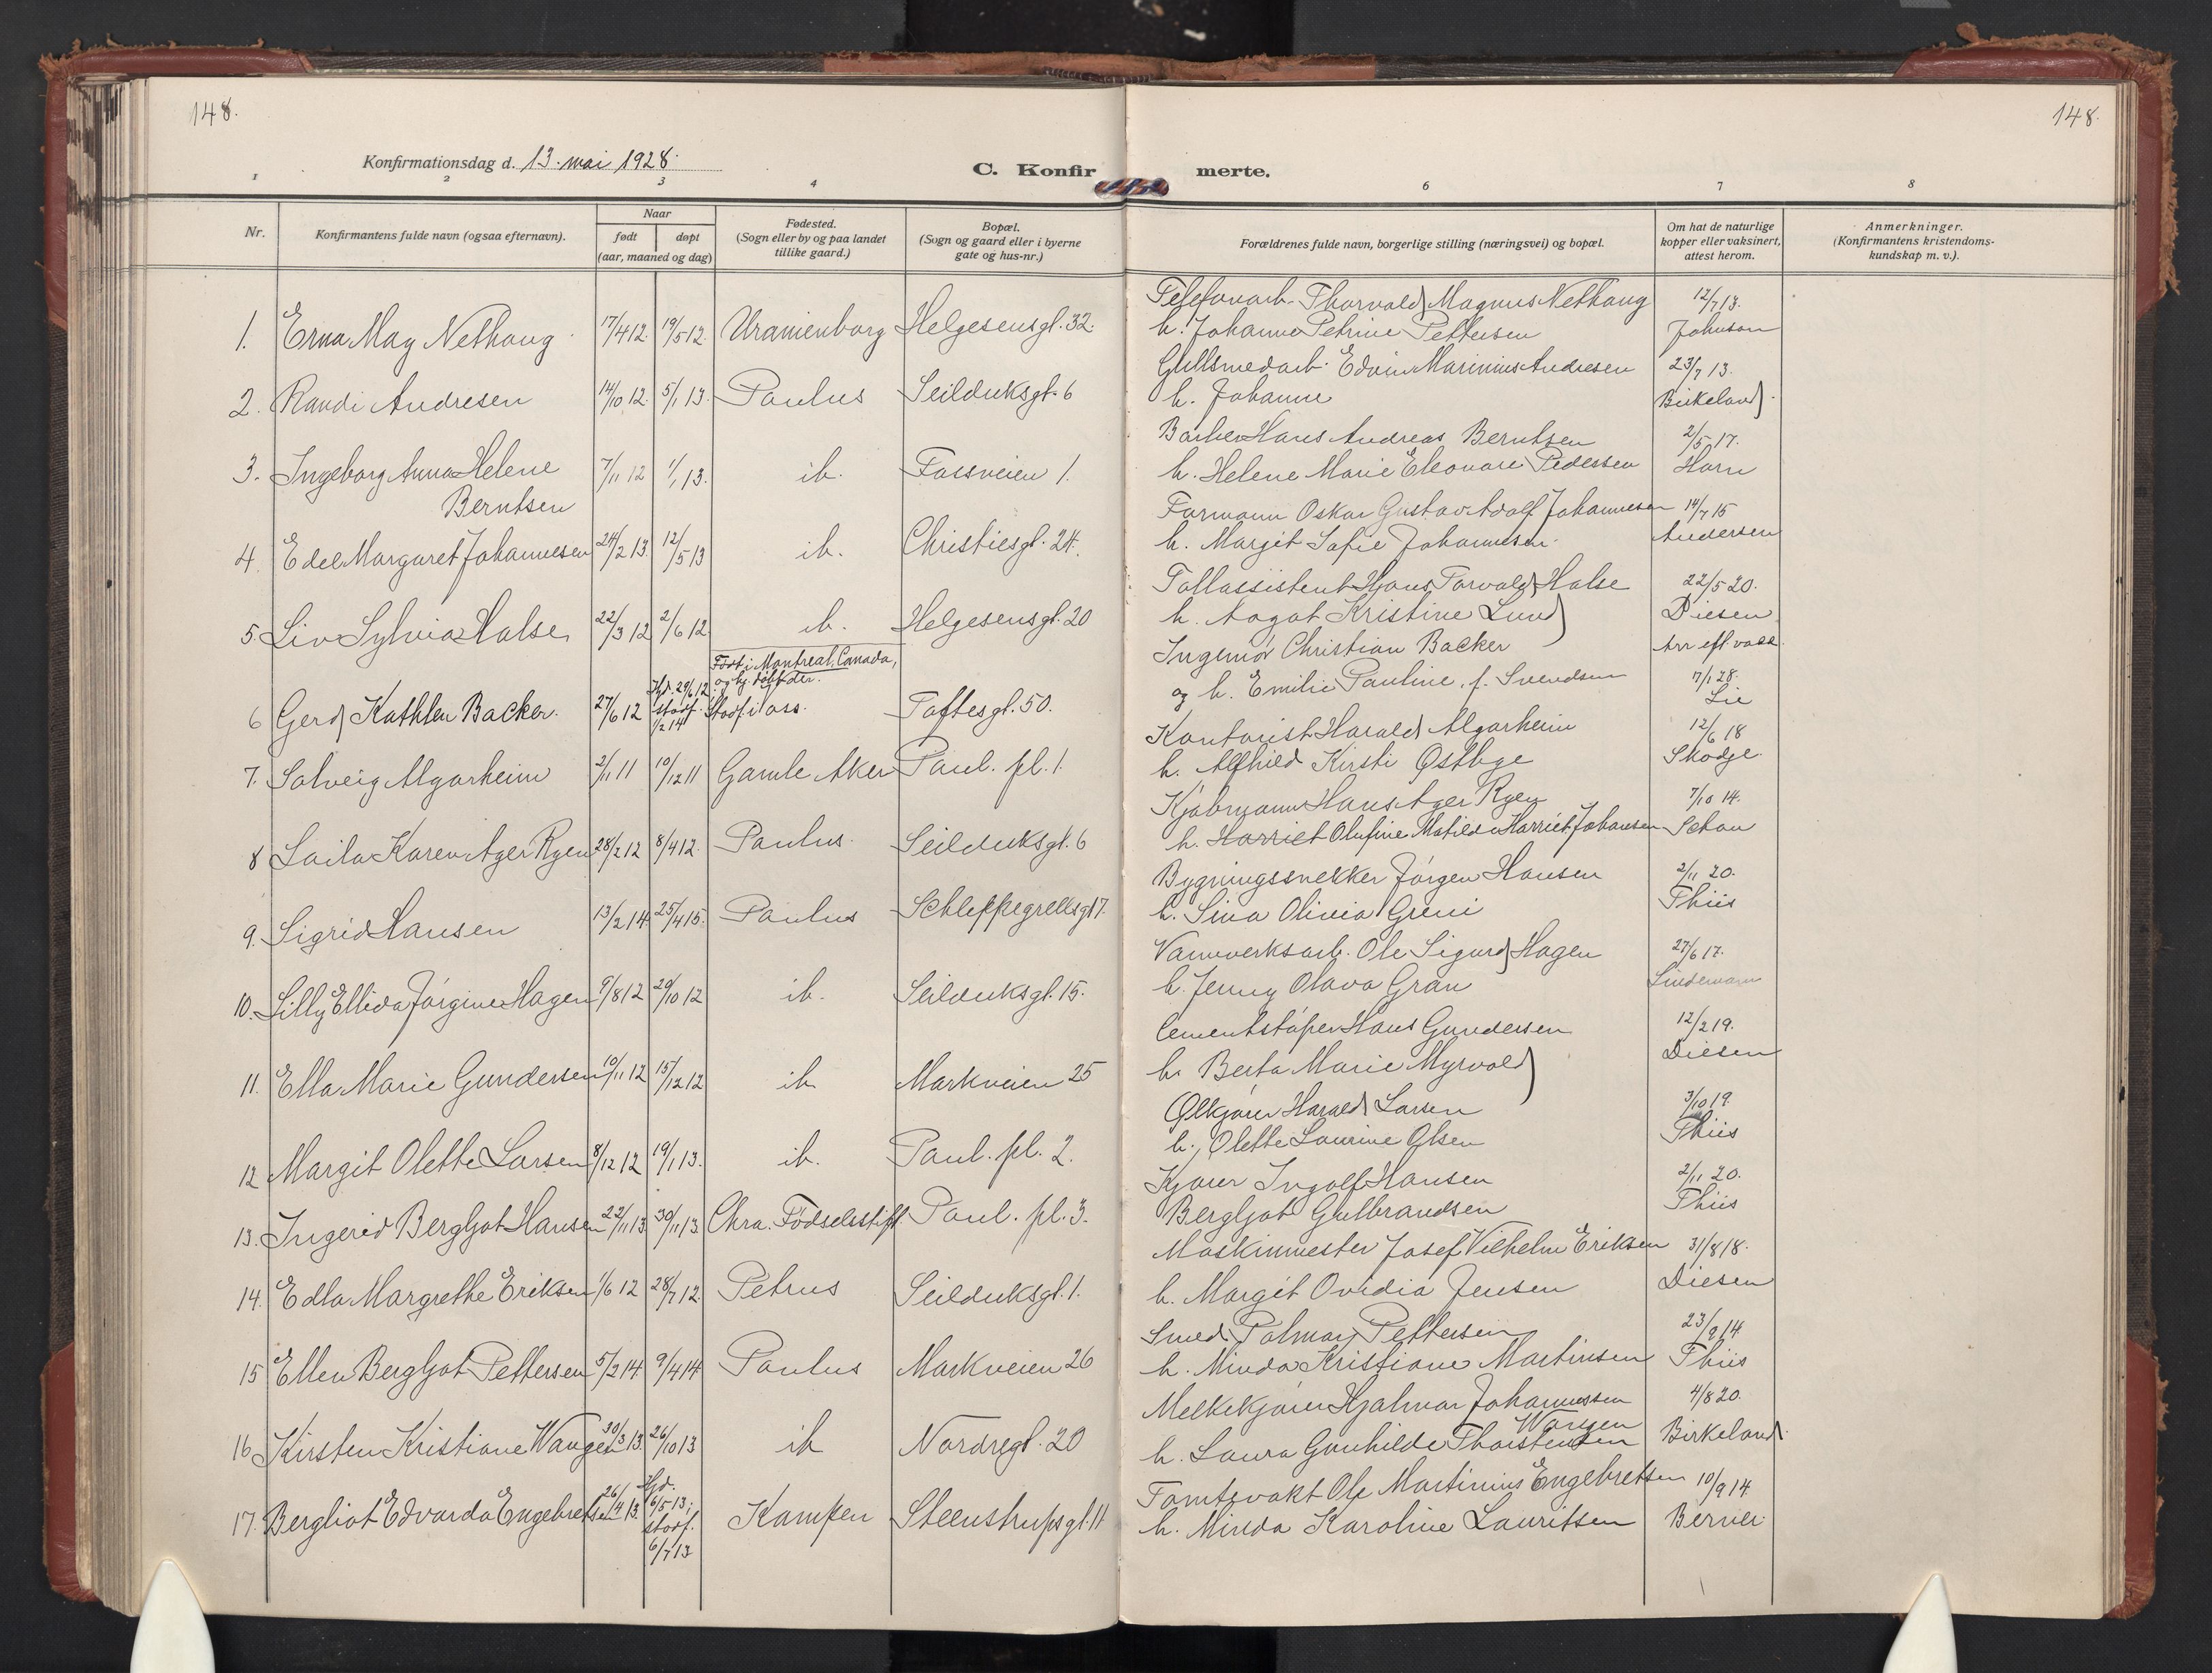 148.
148.
Konfirmationsdag d. 13. mai 1928.
C. Konfir merte.
1 2 3 4 6 7 8
Nr.
Konfirmantens fulde navn (ogsaa efternavn).
Naar
født
døpt
(aar, maaned og dag)
Fødested.
(Sogn eller by og paa landet
tillike gaard.)
Bopæl.
(Sogn og gaard eller i byerne
gate og hus-nr.)
Forældrenes fulde navn, borgerlige stilling (næringsvei) og bopæl.
Om hat de naturlige
kopper eller vaksinert,
attest herom.
Anmerkninger.
(Konfirmantens kristendoms-
kundskap m. v.).
1. Erna May Nethaug 17/4 12. 19/5 12. Uranienborg Helgesensgt. 32.
Telefonarb. Thorvald Magnus Nethaug 12/7 13.
h. Johanne Petrine Pettersen Johnson
2. Randi Andresen 14/10 12. 5/1 13. Paulus Seilduksgt. 6
Gullsmedarb. Edvin Marinius Andresen 23/7 13.
h. Johanne Birkeland.
3. Ingeborg Anna Helene 7/11 12 1/1 13. ib. Fossveien 1.
Berntsen
Barber Hans Andreas Berntsen 2/5 17.
h. Helene Marie Eleonore Pedersen Horn
4. Edel Margaret Johannesen 24/2 13. 12/5 13 ib. Christiesgt. 24.
Formann Oskar Gustav Adolf Johannesen 14/7 15
h. Margit Sofie Johannesen. Andersen
5 Liv Sylvia Halse 22/3 12 2/6 12 ib. Helgesensgt. 20
Tollassistent Hans Torvald Halse 22/5 20.
h. Aagot Kristine Lund Diesen
6 Gerd Kathlen Backer. 27/6 12 Hjd. 29/6 12. stadf. 1/2 14
Født i Montreal, Canada,
og hj. døbt der.
Stadf. i oss. Toftesgt. 50.
Ingeniør Christian Backer Arr eft vakk.
og h. Emilie Pauline, f. Svendsen 17/1 28.
Lie
7. Solveig Algarheim 2/11 11 10/12 11 Gamle Aker Paul. pl. 1.
Kontorist Harald Algarheim 12/6 18
h. Alfhild Kirsti Østbye Skodje.
8 Laila Karen Ager Ryen 28/2 12 8/4 12. Paulus. Seilduksgt. 6
Kjøbmann Hans Ager Ryen 7/10 14.
h. Harriet Olufine Matilde Harriet Johansen Schou
9. Sigrid Hansen 13/2 14. 25/4 15. Paulus Schleppegrellsgt 7.
Bygningssnekker Jørgen Hansen 2/11 20.
h. Sina Olivia Greni Thiis
10. Lilly Ellida Jørgine Hagen 9/8 12 20/10 12 ib. Seilduksgt. 15.
Vannverksarb. Ole Sigurd Hagen 27/6 17.
h. Jenny Olava Gran Lindemann
11. Ella Marie Gundersen 10/11 12 15/12 12 ib Markveien 25
Cementstøper Hans Gundersen 12/2 19.
h. Berta Marie Myrvold Diesen
12 Margit Olette Larsen 8/12 12 19/1 13. ib. Paul. pl. 2.
Ølkjører Harald Larsen 3/10 19.
h. Olette Laurine Olsen Thiis
13. Ingerid Bergljot Hansen 22/11 13. 30/11 13. Chra. Fødselsstift. Paul. pl. 3.
Kjører Ingolf Hansen 2/11 20.
Bergljot Gulbrandsen Thiis
14. Edla Margrethe Eriksen 1/6 12 28/7 12. Petrus Seilduksgt. 1.
Maskinmester Josef Vilhelm Eriksen 31/8 18.
h. Margit Ovidia Jensen Diesen
15 Ellen Bergljot Pettersen 5/2 14 9/4 14 Paulus Markveien 26
Smed Palmar Pettersen 23/9 14.
h. Minda Kristiane Martinsen Thiis
16 Kirsten Kristiane Wangen 30/3 13. 26/10 13 ib Nordregt. 20
Melkekjører Hjalmar Johannessen 4/8 20.
Wangen
h. Laura Gunhilde Thorstensen Birkeland.
17. Bergliot Edvarda Engebretsen 26/4 13. Hjd. 6/5 13; stadf. 6/7 13 Kampen Steenstrupsgt. 11
Tomtevakt Ole Martinius Engebretsen 10/9 14.
h. Minda Karoline Lauritsen Berner.